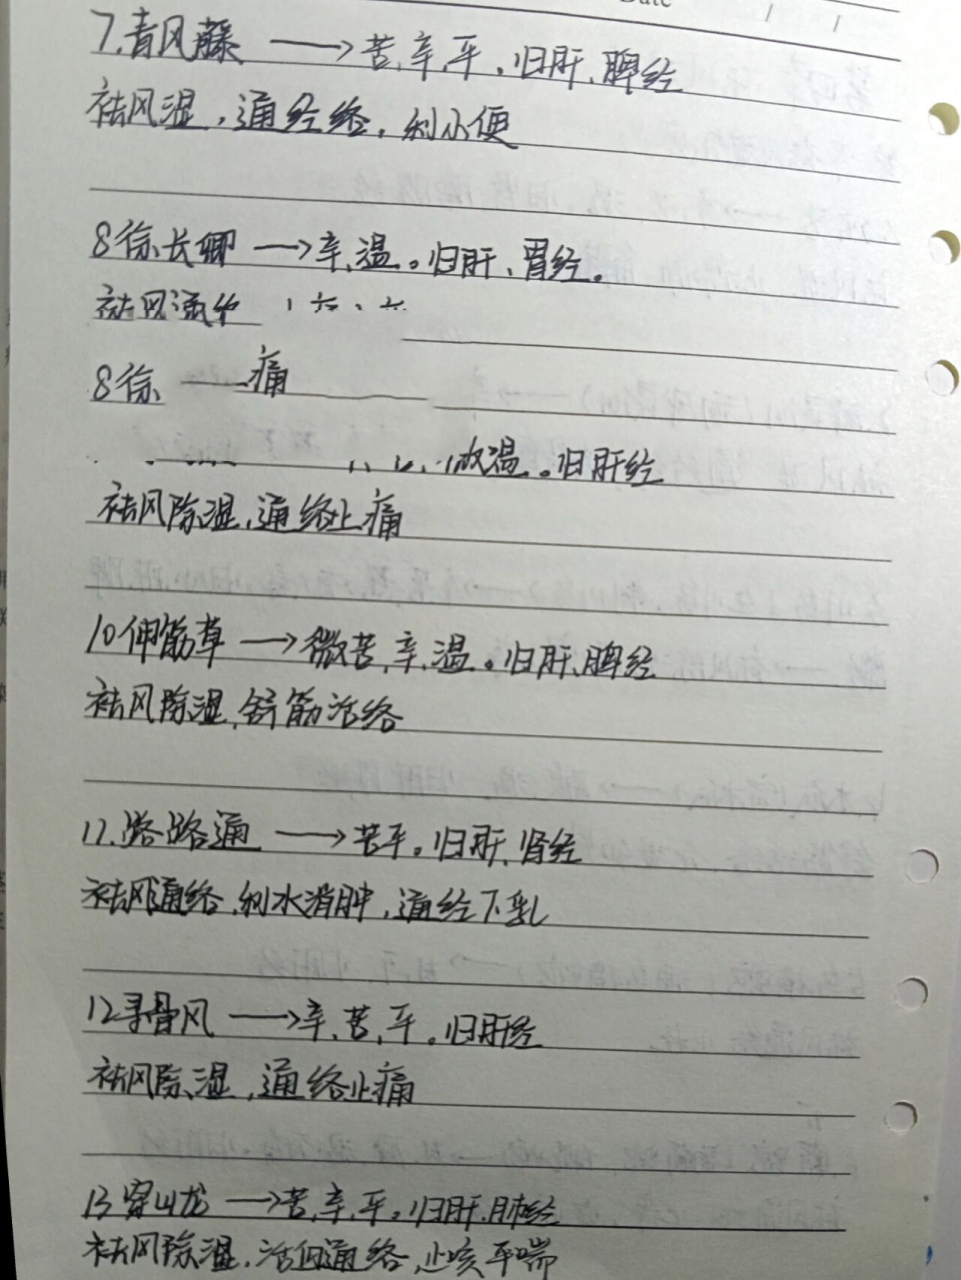 Date / /
7.青风藤 → 苦、辛、平。归肝、脾经
祛风湿,通经络,利小便
8徐长卿 → 辛、温。归肝、胃经。
祛风通
8徐
痛
微温。归肝经
祛风除湿,通络止痛
10伸筋草 → 微苦,辛,温。归肝、脾经
祛风除湿,舒筋活络
11.路路通 → 苦平。归肝、肾经
祛风通络,利水消肿,通经下乳
12寻骨风 → 辛、苦,平。归肝经
祛风除湿,通络止痛
13穿山龙 → 苦、辛、平。归肝、肺经
祛风除湿,活血通络,止咳平喘